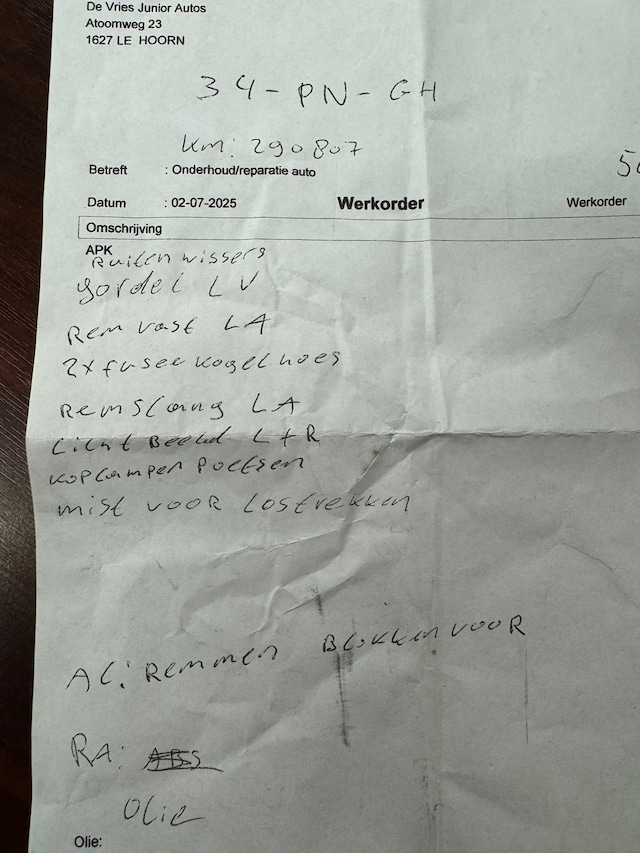 De Vries Junior Autos
Atoomweg 23
1627 LE HOORN
34-PN-GH
km: 290807
Betreft : Onderhoud/reparatie auto
Datum : 02-07-2025 Werkorder Werkorder
Omschrijving
APK
Ruiten wissers
gordel LV
Rem vast LA
2x fusee kogel hoes
Remslang LA
Licht Beeld L+R
koplampen poetsen
mist voor lostrekken
AC: Remmen Blokken voor
RA: ABS
Olie
Olie: